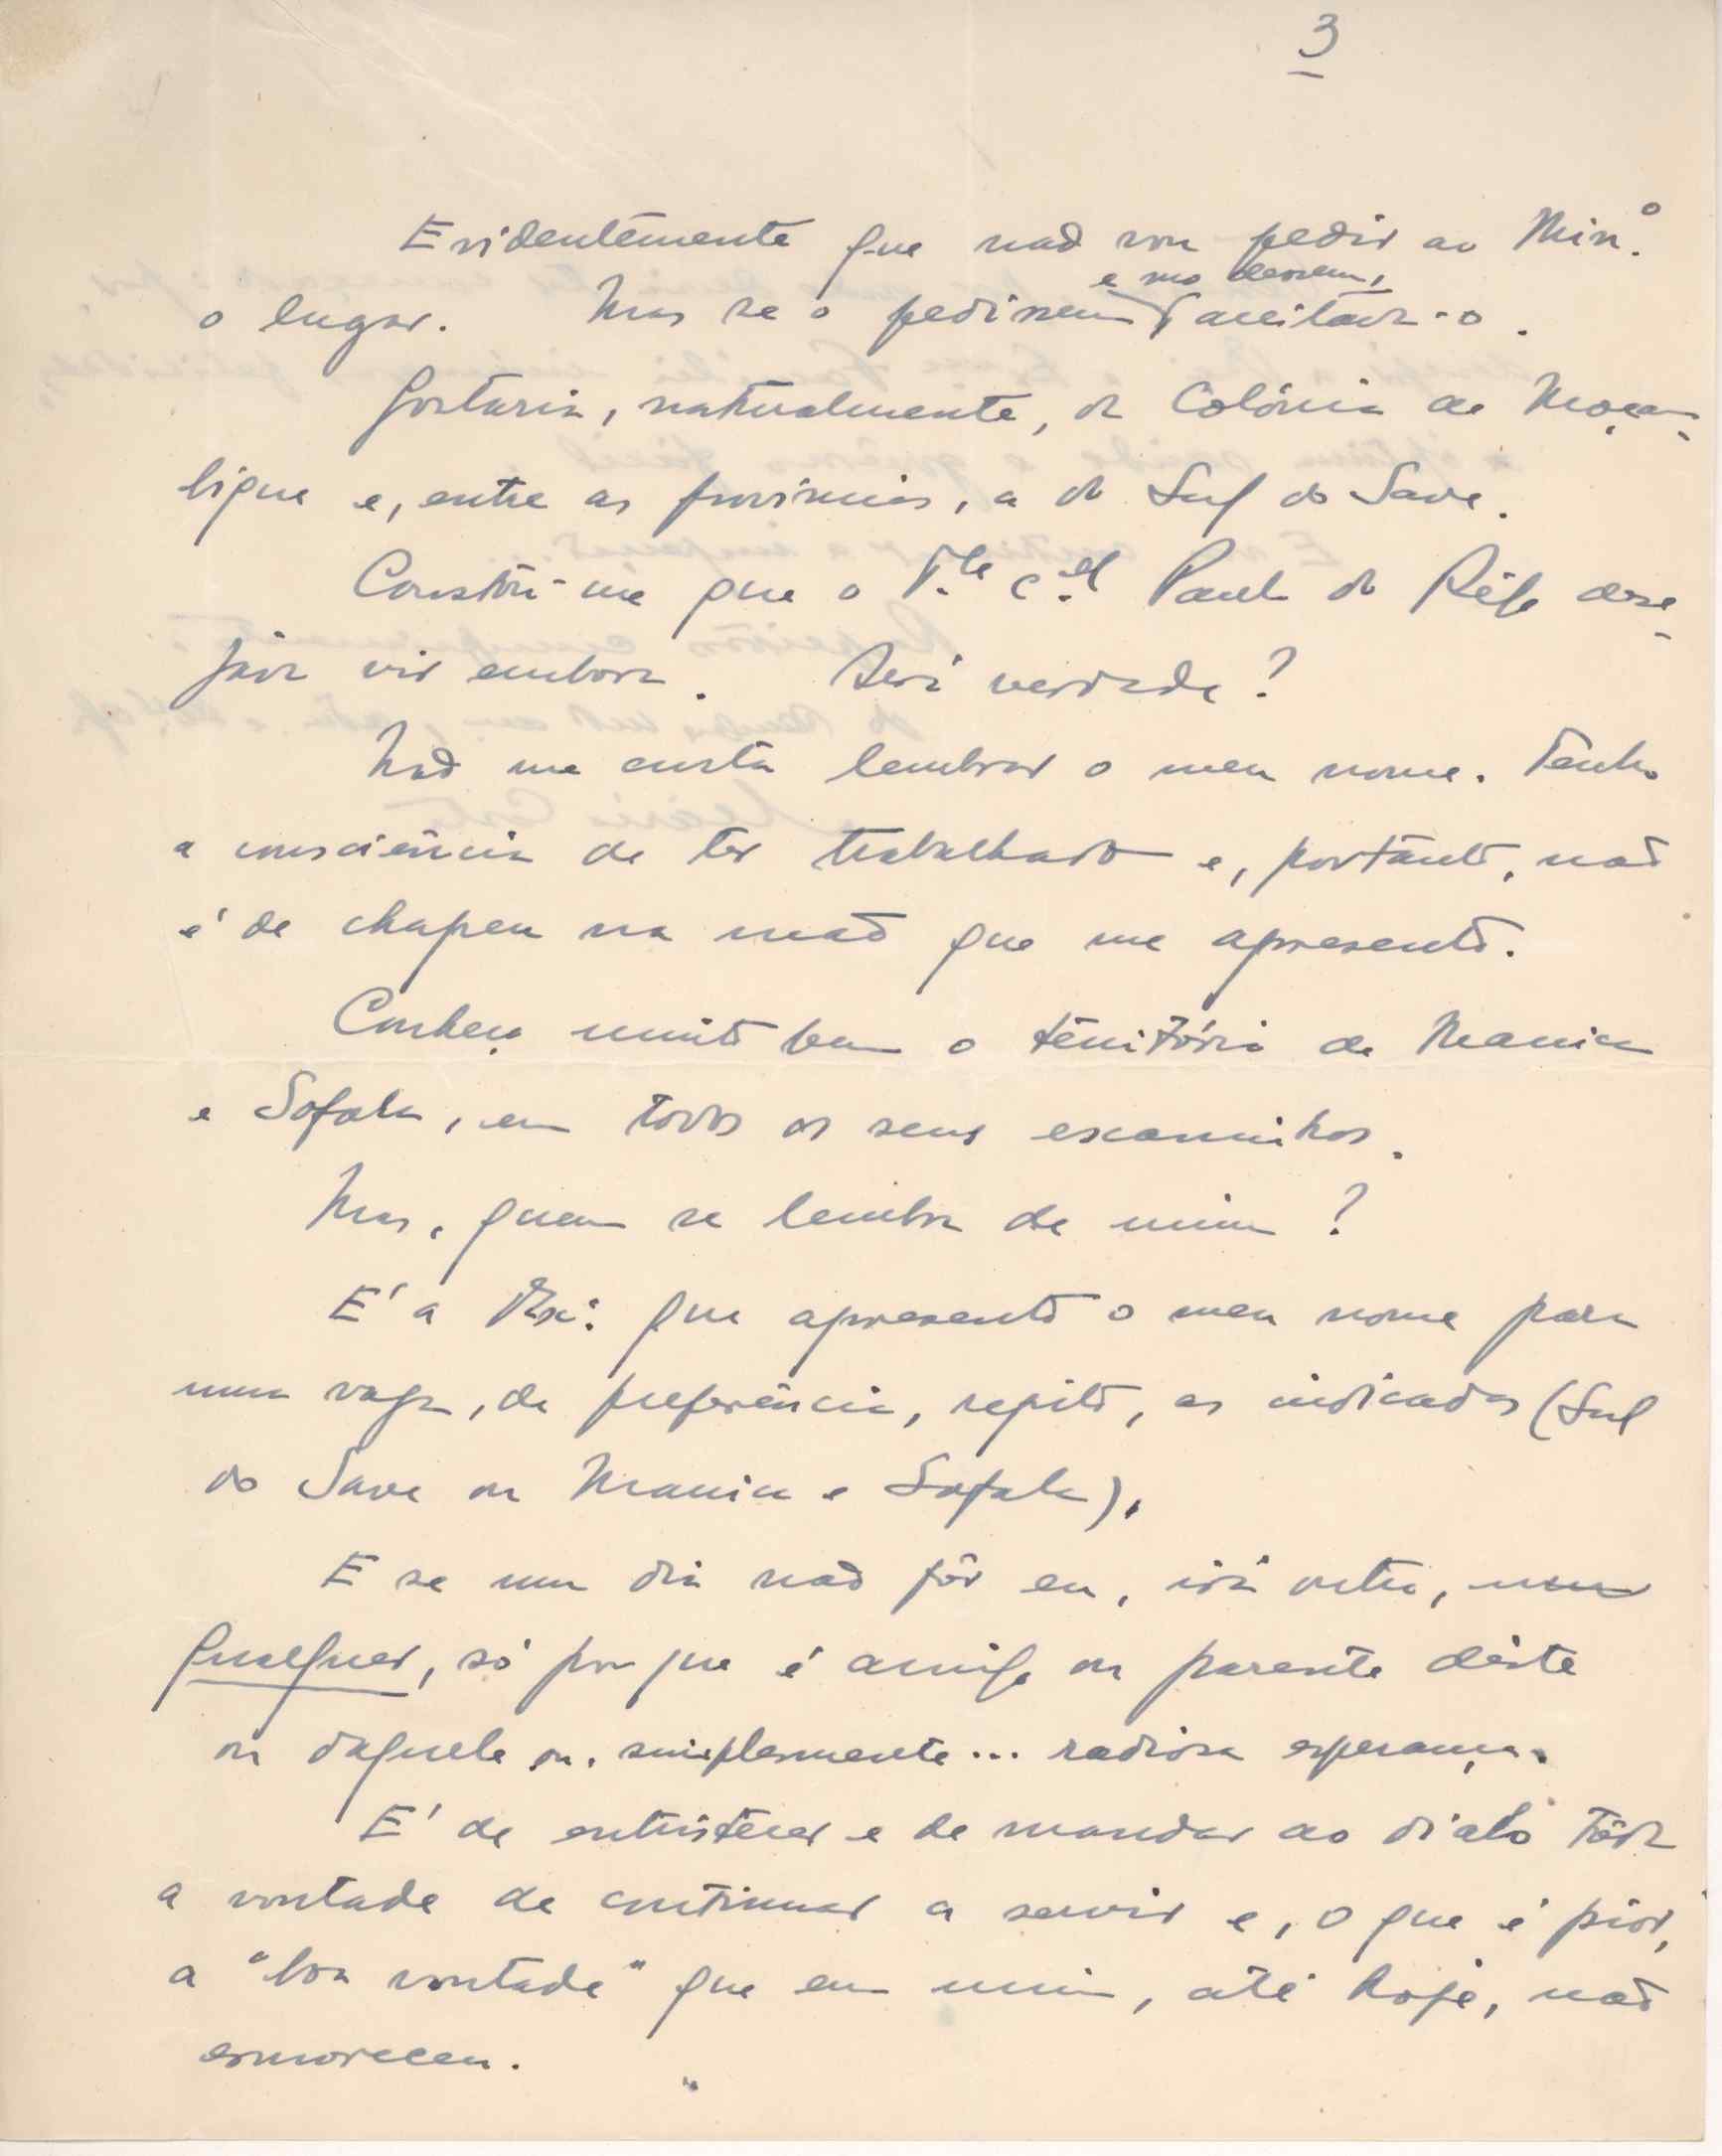 3
Evidentemente que não vou pedir ao Min.º
e mo dessem,
o lugar. Mas se o pedissem aceitava-o.
Gostaria, naturalmente, da Colónia de Moçam-
bique e, entre as províncias, a do Sul do Save.
Consta-me que o T.te C.el Paula do Rêgo dese-
java vir embora. Será verdade?
Não me custa lembrar o meu nome. Tenho
a consciência de ter trabalhado e, portanto, não
é de chapeu na mão que me apresento.
Conheço muito bem o território de Manica
e Sofala, em todos os seus escaninhos.
Mas, quem se lembra de mim?
É a V. Ex.ª que apresento o meu nome para
uma vaga, de preferência, repito, as indicadas (Sul
do Save ou Manica e Sofala).
E se um dia não fôr eu, irá outro, um
qualquer, só por que é amigo ou parente dêste
ou daquele ou, simplesmente... radiosa esperança.
É de entristecer e de mandar ao diabo tôda
a vontade de continuar a servir e, o que é piór,
a "boa vontade" que em mim, até hoje, não
esmoreceu.